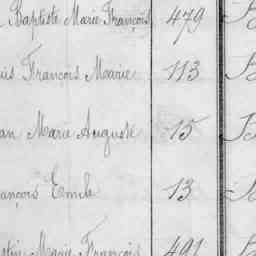 Baptiste Marie François 479 B
uis François Marie 113 B
an Marie Auguste 15
ançois Emile 13
Marie François 491 B